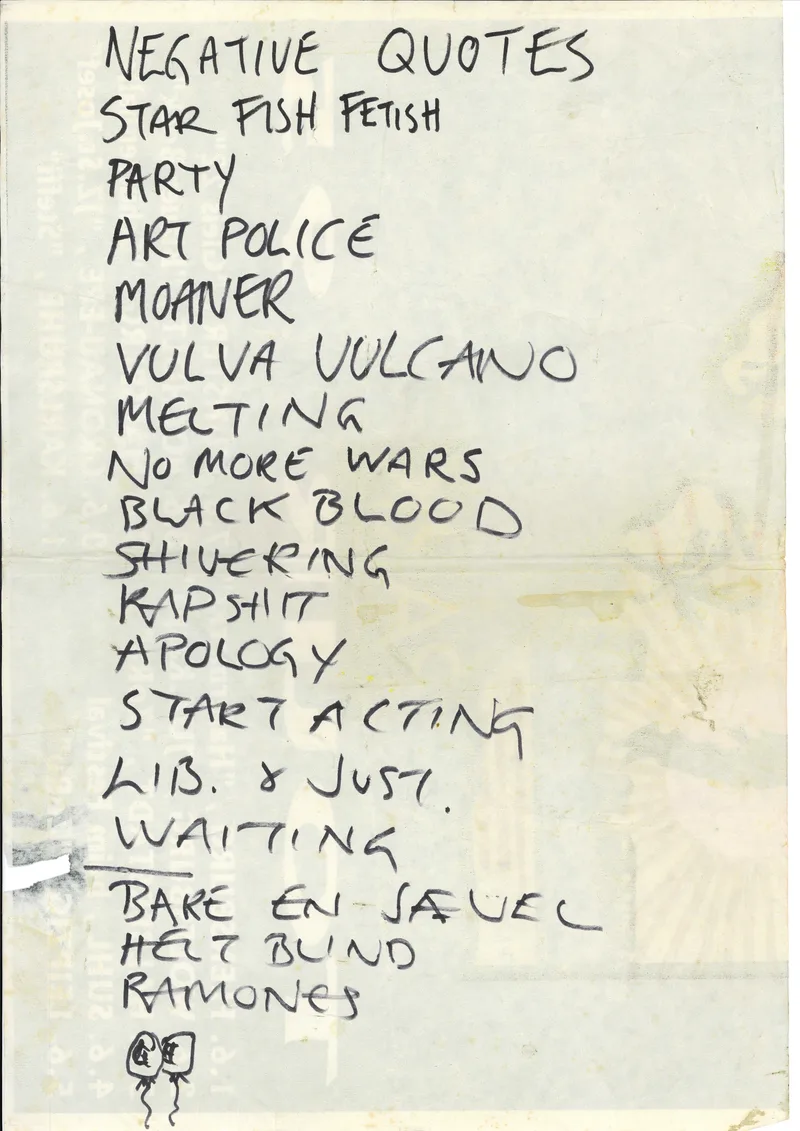 NEGATIVE QUOTES
STAR FISH FETISH
PARTY
ART POLICE
MOANER
VULVA VULCANO
MELTING
NO MORE WARS
BLACK BLOOD
SHIVERING
RAPSHIT
APOLOGY
START ACTING
LIB. & JUST.
WAITING
BARE EN SÆVEL
HELT BLIND
RAMONES